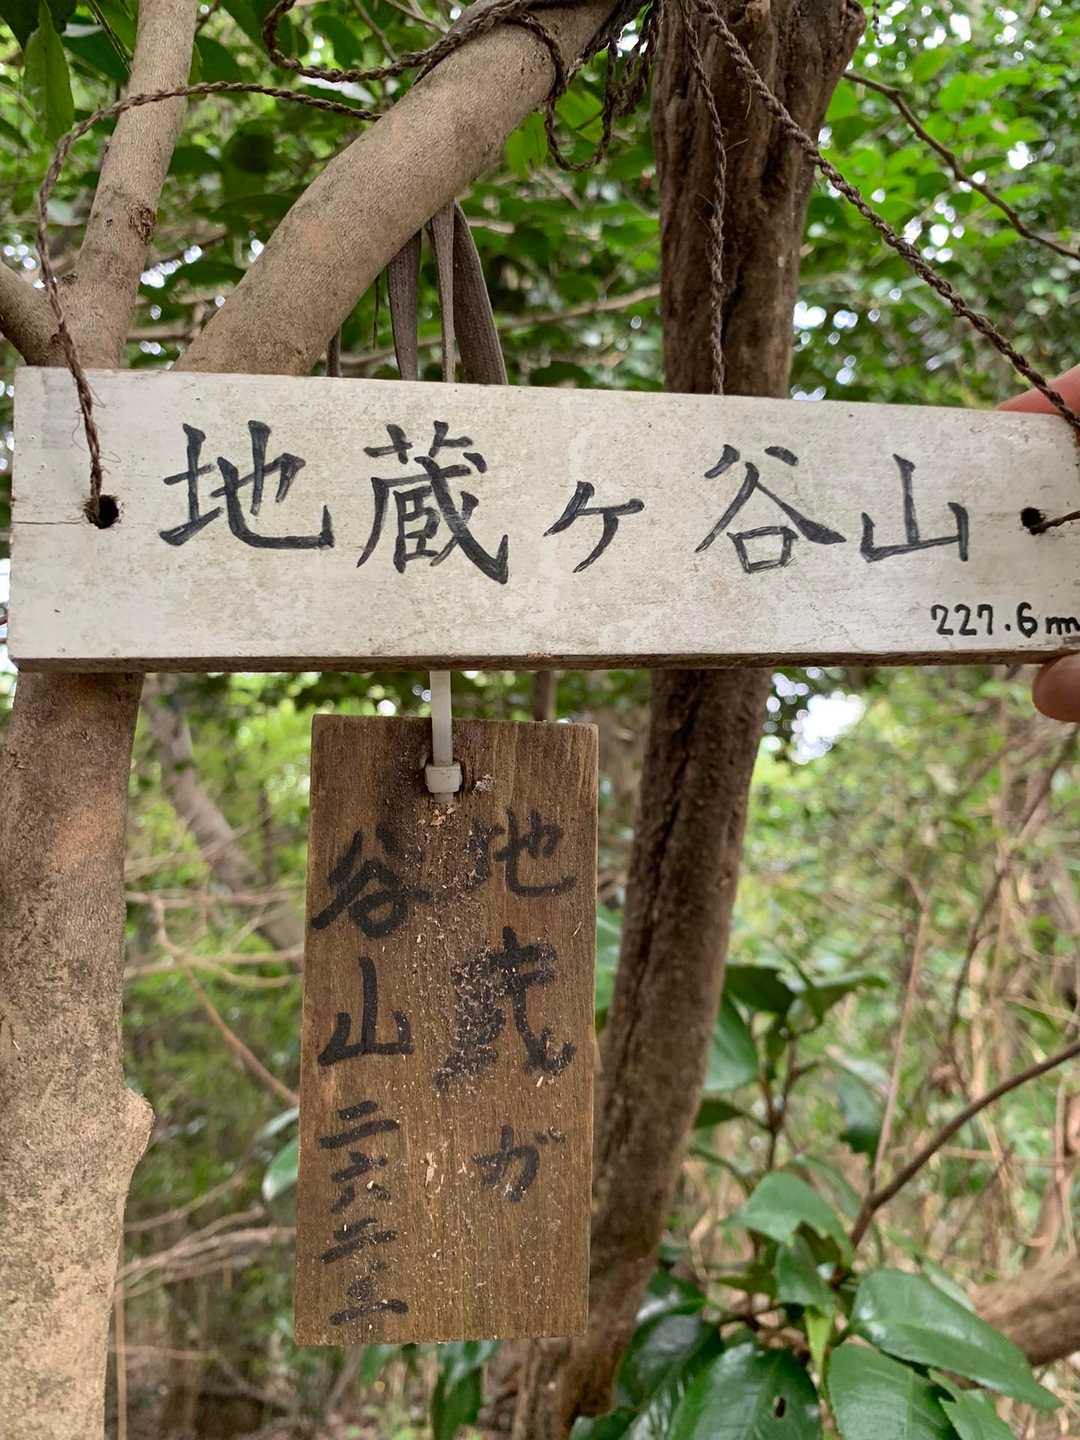 地蔵ヶ谷山
227.6m
地蔵ガ
谷山二六二